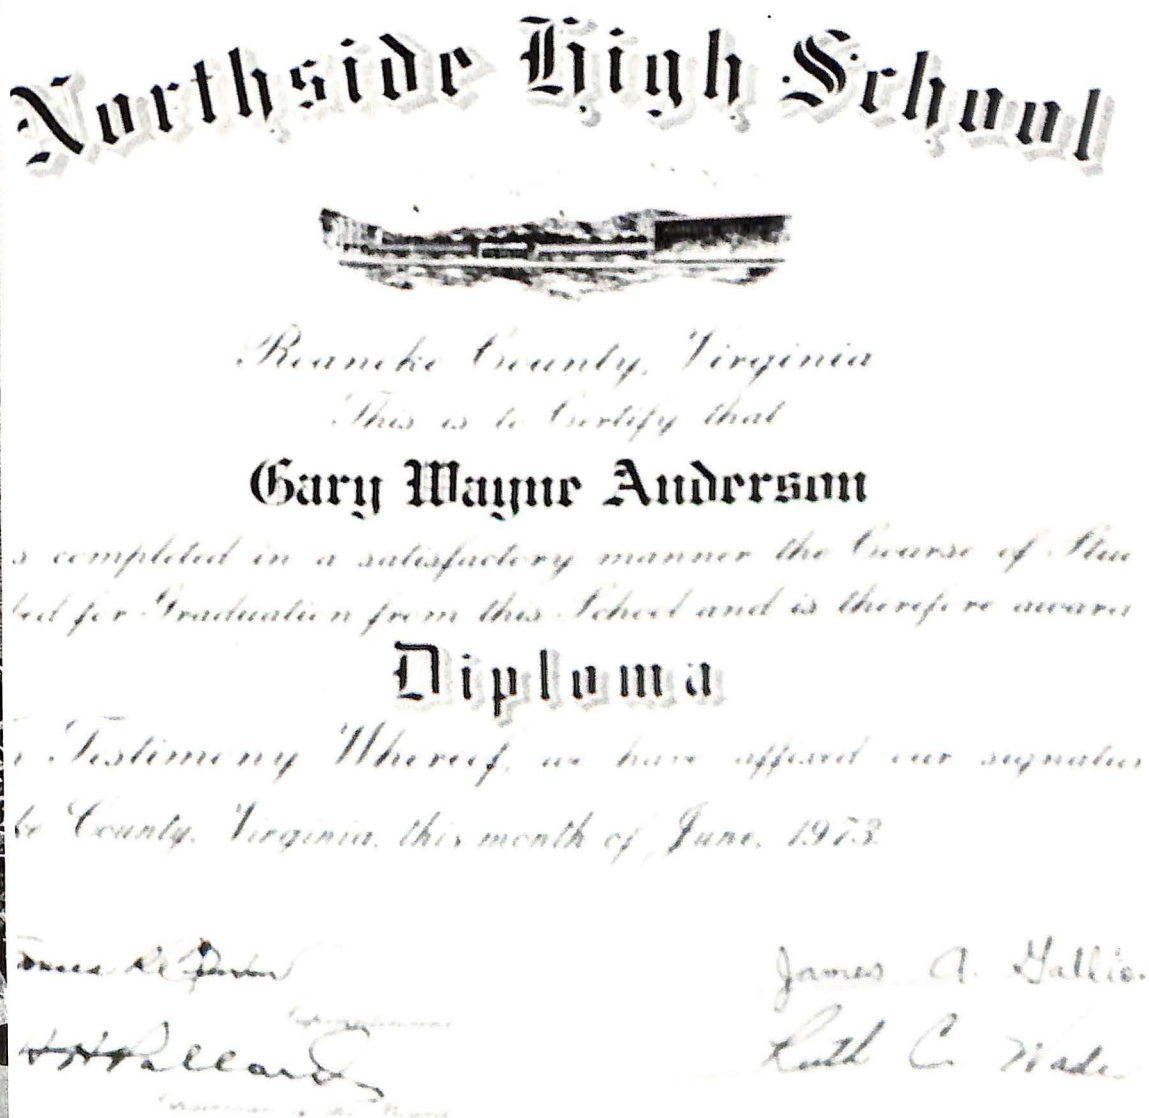 Northside High School
Roanoke County, Virginia
This is to Certify that
Gary Wayne Anderson
s completed in a satisfactory manner the Course of Stud
bed for Graduation from this School and is therefore award
Diploma
n Testimony Whereof, we have affixed our signatur
ke County, Virginia, this month of June, 1973.
James A. Gallio
Superintendent
H H Pollard
Ruth C. Wade
Chairman of the Board